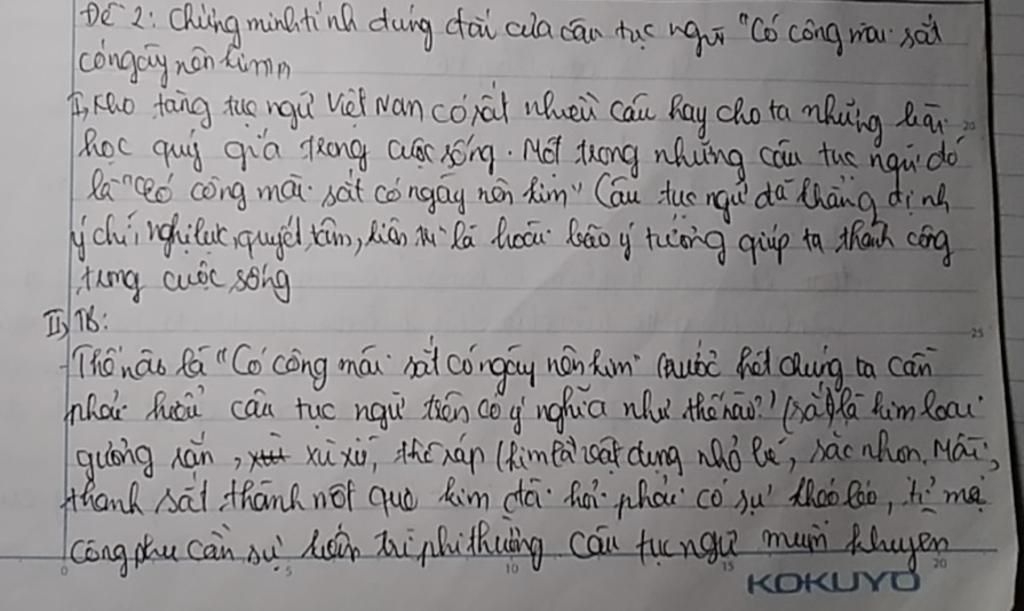 Đề 2: Chứng minh tính đúng đắn của câu tục ngữ "Có công mài sắt
có ngày nên kim"
I, Kho tàng tục ngữ Việt Nam có rất nhiều câu hay cho ta những bài
học quý giá trong cuộc sống. Một trong những câu tục ngữ đó
là "Có công mài sắt có ngày nên kim" Câu tục ngữ đã khẳng định
ý chí, nghị lực, quyết tâm, kiên trì là hoài bão ý tưởng giúp ta thành công
trong cuộc sống
II, TB:
- Thế nào là "Có công mài sắt có ngày nên kim" trước hết chúng ta cần
phải hiểu câu tục ngữ trên có ý nghĩa như thế nào? (sắt) là kim loại
gượng rắn, xù xì, thô ráp (kim là vật dụng nhỏ bé, sắc nhọn. Mài,
thanh sắt thành một que kim đòi hỏi phải có sự khéo léo, tỉ mỉ
công phu cần sự kiên trì phi thường câu tục ngữ muốn khuyên
0 5 10 15 20
KOKUYO
20
25